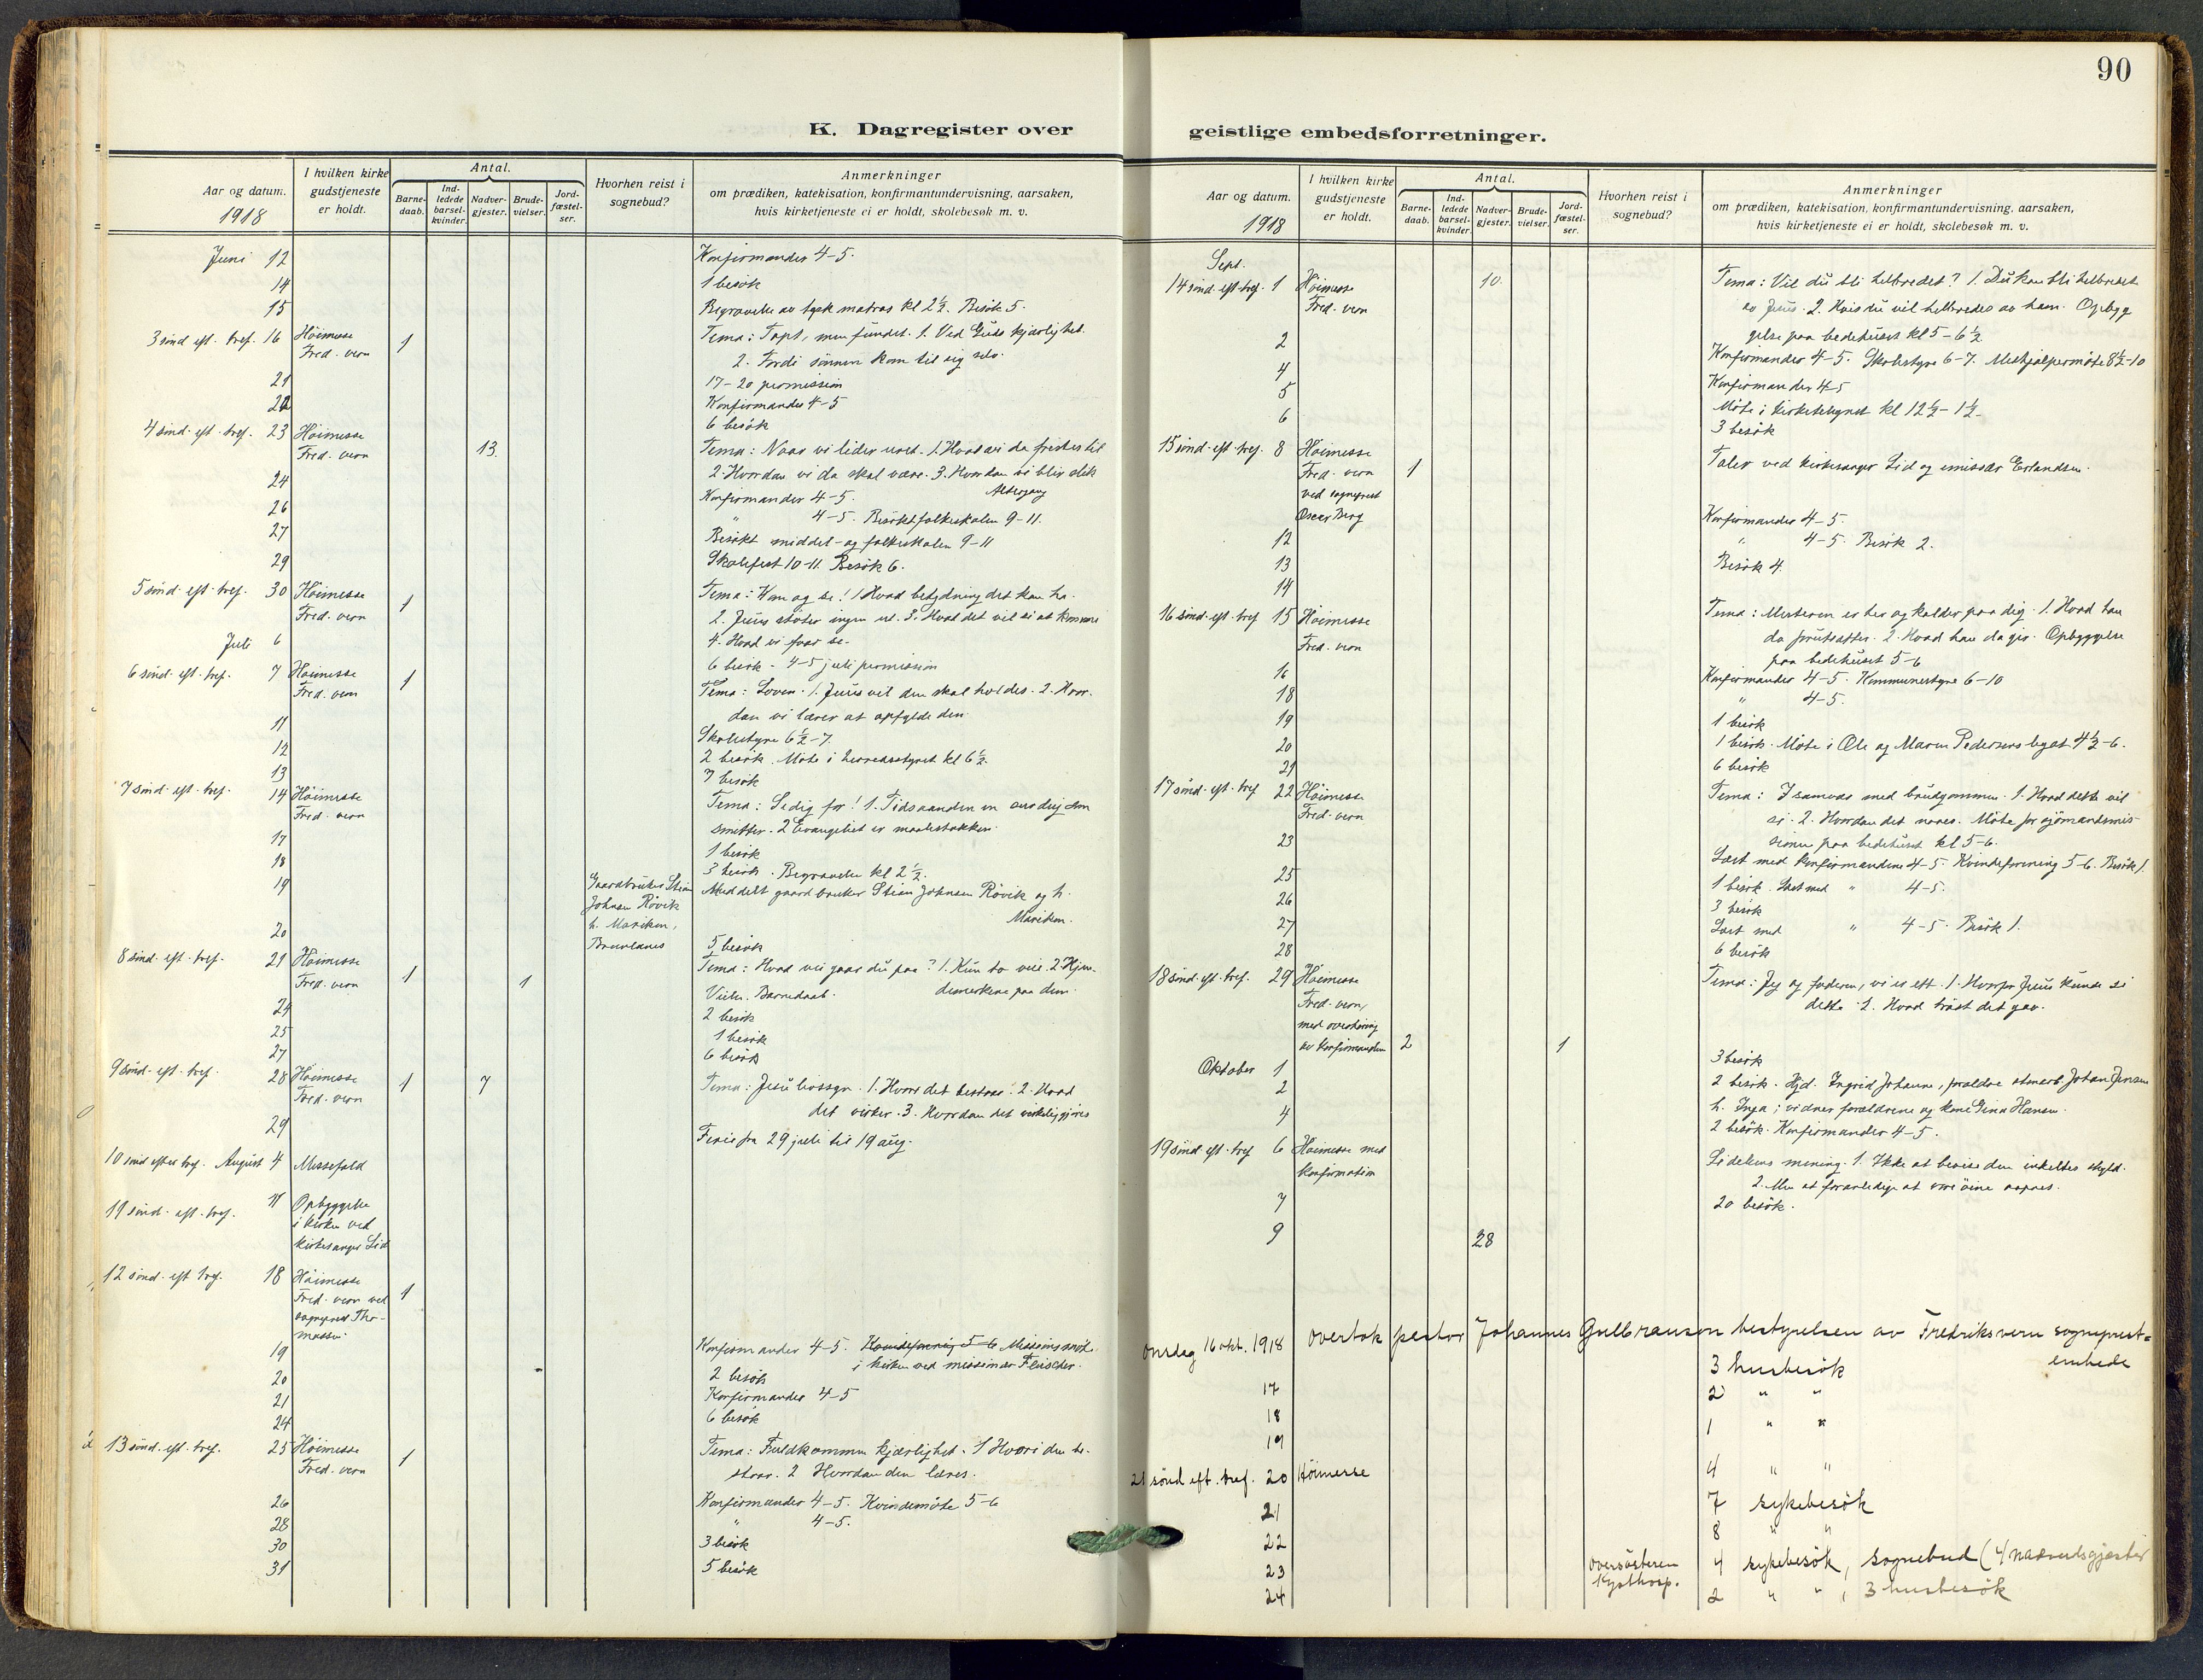 90
K. Dagregister over
geistlige embedsforretninger.
Aar og datum.
1918
I hvilken kirke
gudstjeneste
er holdt.
Antal.
Barne-
daab.
Ind-
ledede
barsel-
kvinder.
Nadver-
gjester.
Brude-
vielser.
Jord-
fæstel-
ser.
Hvorhen reist i
sognebud?
Anmerkninger
om prædiken, katekisation, konfirmantundervisning, aarsaken,
hvis kirketjeneste ei er holdt, skolebesøk m. v.
Juni 12 Konfirmander 4-5.
14 1 besøk
15 Begravelse av tysk matros kl 2½. Besøk 5.
3 sönd eft. tref. 16 Höimesse 1 Tema: Tapt, men fundet. 1. Ved Guds kjærlighet.
Fred. vern 2. Fordi sönnen kom til sig selv.
17-20 permission
21 Konfirmander 4-5
22 6 besøk
4 sönd. eft. tref. 23 Höimesse 13. Tema: Naar vi lider uret. 1. Hvad vi da fristes til
Fred. vern 2. Hvordan vi da skal være. 3. Hvordan vi blir slik
Altergang
24 Konfirmander 4-5.
26 " 4-5. Besøkt folkeskolen 9-11.
27 Besøkt middel- og folkeskolen 9-11
29 Skolefest 10-11. Besøk 6.
5 sönd. eft. tref. 30 Höimesse 1 Tema: Kom og se! 1 Hvad betydning det kan ha.
Fred. vern 2. Jesus støter ingen ut. 3. Hvad det vil si at komme
4. Hvad vi faar se.
Juli 6 6 besøk - 4-5 juli permission
6 sönd. eft. tref. 7 Höimesse 1 Tema: Loven. 1. Jesus vil den skal holdes. 2. Hvor-
Fred. vern dan vi lærer at opfylde den.
11 Skolestyre 6½-7.
12 2 besøk. Møte i herredsstyret kl 6½.
13 7 besøk
7 sönd. eft. tref. 14 Höimesse Tema: Se dig for! 1. Tidsaanden
Fred. vern smitter. 2 Evangeliet er maalestokken.
17 1 besøk
18 3 besøk. Begravelse kl 2½.
19 Gaardbruker Stian Meddelt gaardbruker Stian Johnsen Røvik og h.
Johnsen Røvik Mariken.
h. Mariken,
Brunlanes
20 5 besøk
8 sönd. eft. tref. 21 Höimesse 1 1 Tema: Hvad vei gaar du paa? 1. Kun to veie. 2. Kjen-
Fred. vern Vielse. Barnedaab. demerkene paa dem.
24 2 besøk
25 1 besøk
27 6 besøk
9 sönd. eft. tref. 28 Höimesse 1 7 Tema: Jesu livssyn. 1. Hvori det bestaar. 2. Hvad
Fred. vern det virker. 3. Hvordan det virkeliggjøres
29 Ferie fra 29 juli til 19 aug.
10 sönd efter tref. August 4 Messefald
11 sönd. eft. tref. 11 Opbyggelse
i kirken ved
kirkesanger Lid
12 sönd. eft tref. 18 Höimesse 1
Fred. vern ved
sogneprest Tho-
massen.
19 Konfirmander 4-5. Kvindeforening 5-6 Missionsmøte
i kirken ved missionær Fleischer.
20 2 besøk
21 Konfirmander 4-5
24 6 besøk
13 sönd. eft. tref. 25 Höimesse 1 Tema: Fuldkommen kjærlighet. 1 Hvori den be-
Fred. vern staar. 2 Hvordan den læres.
26 Konfirmander 4-5. Kvindemøte 5-6
28 " 4-5.
30 3 besøk
31 5 besøk
Aar og datum.
1918
I hvilken kirke
gudstjeneste
er holdt.
Antal.
Barne-
daab.
Ind-
ledede
barsel-
kvinder.
Nadver-
gjester.
Brude-
vielser.
Jord-
fæstel-
ser.
Hvorhen reist i
sognebud?
Anmerkninger
om prædiken, katekisation, konfirmantundervisning, aarsaken,
hvis kirketjeneste ei er holdt, skolebesøk m. v.
Sept.
14 sönd. eft. tref. 1 Höimesse 10. Tema: Vil du bli helbredet? 1. Du kan bli helbredet
Fred. vern av Jesus. 2. Hvis du vil helbredes av ham. Opbyg
gelse paa bedehuset kl 5-6½
2 Konfirmander 4-5. Skolestyre 6-7. Medhjælpermøte 8½-10
4 Konfirmander 4-5
5 Møte i kirketilsynet kl 12½-1½.
6 3 besøk
15 sönd. eft. tref. 8 Höimesse 1 Taler ved kirkesanger Lid og emissær Erlandsen.
Fred. vern
ved sogneprest
Oscar Berg
12 Konfirmander 4-5.
13 " 4-5. Besøk 2.
14 Besøk 4.
16 sönd. eft. tref 15 Höimesse Tema: Mesteren er her og kalder paa dig. 1. Hvad han
Fred. vern da forutsætter. 2. Hvad han da gir. Opbyggelse
paa bedehuset 5-6
16 Konfirmander 4-5. Kommunestyre 6-10
18 " 4-5.
19 1 besøk
20 1 besøk. Møte i Ole og Maren Pedersens legat 4½-6.
21 6 besøk
17 sönd. eft. tref 22 Höimesse Tema: I samvær med brudgommen. 1. Hvad dette vil
Fred. vern si. 2. Hvordan det naaes. Møte for sjömandsmis-
sionen paa bedehuset kl 5-6.
23 Læst med konfirmandene 4-5. Kvindeforening 5-6. Besøk 1.
25 1 besøk. Læst med " 4-5.
26 3 besøk
27 Læst med " 4-5. Besøk 1.
28 6 besøk
18 sönd. eft. tref. 29 Höimesse Tema: Jeg og faderen, vi er ett. 1. Hvorfor Jesus kunde si
Fred. vern, dette. 2. Hvad trøst det gav.
med overhøring
av konfirmanden 2 1
Oktober 1 3 besøk
2 2 besøk. Hjd. Ingrid Johanne, forældre Johan Jensen
h. Inga; vidner forældrene og kone Gina Hansen.
4 2 besøk. Konfirmander 4-5.
19 sönd. eft. tref 6 Höimesse med Lidelsens mening. 1. Ikke at bevise den enkeltes skyld.
konfirmation 2. Men at foranledige at vore øine aapnes.
7 20 besøk.
9 28
Onsdag 16 okt. 1918 overtok pastor Johannes Gulbranson bestyrelsen av Fredriksvern sogneprest=
embede
3 husbesök
17 2 " "
18 1 " "
19 4 " "
21 sönd eft. tref. 20 Höimesse
21 7 sykebesök
22 8 " "
23 Oversösteren 4 sykebesök, sognebud (4 nadverdsgjester
Kysthosp.
24 2 " " , 3 husbesök